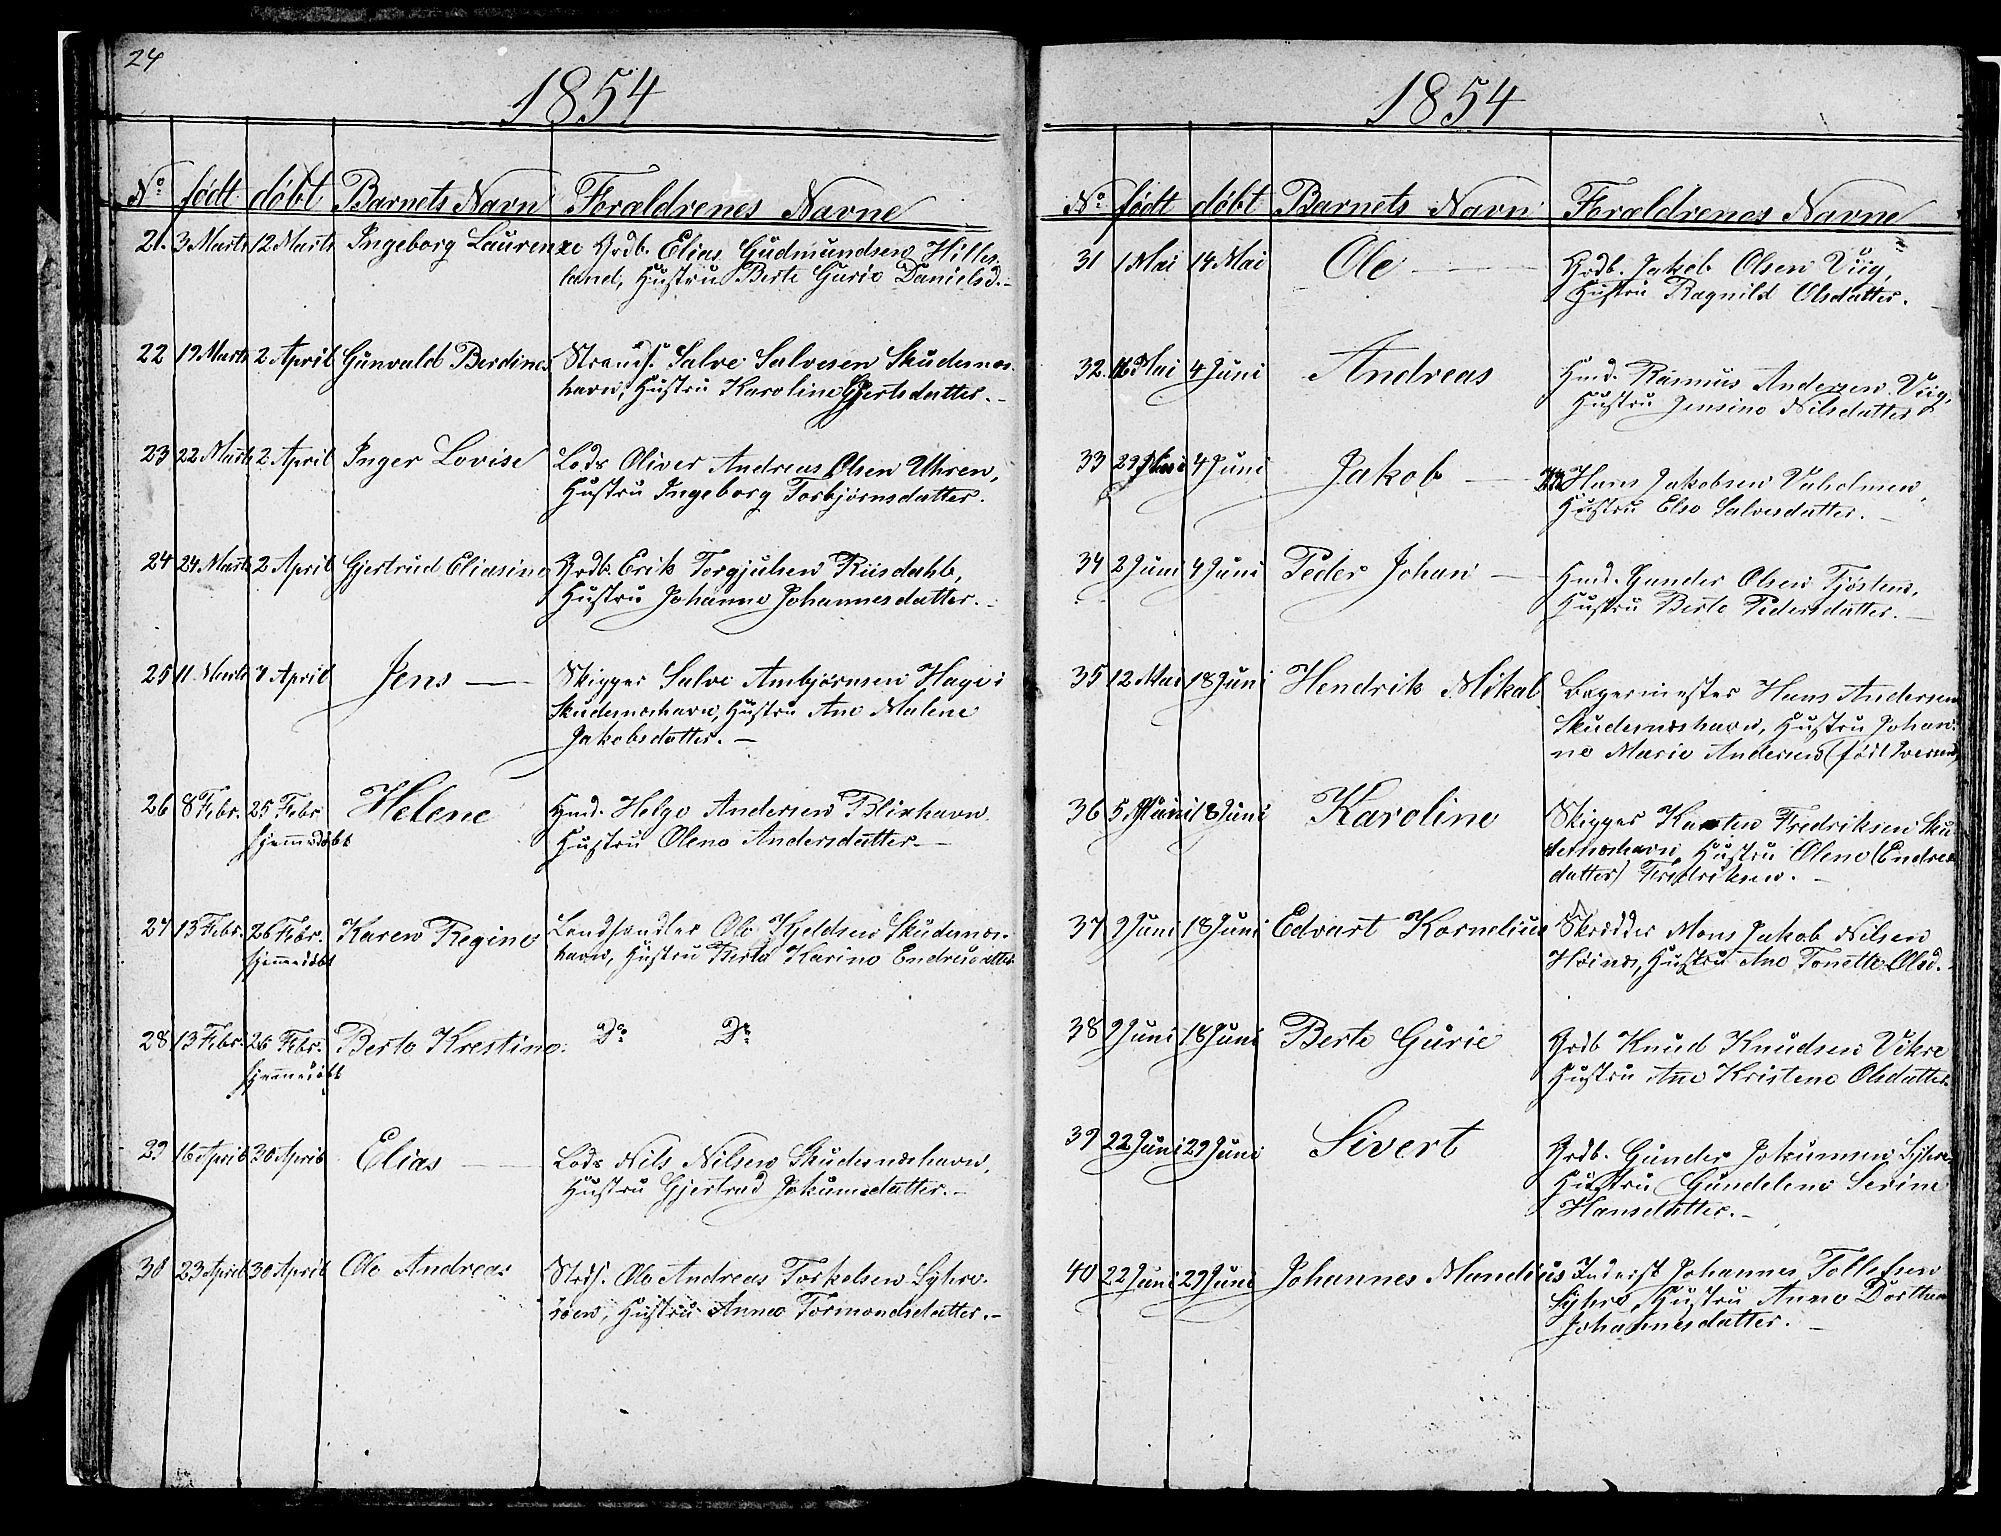 24
1854
No. født døbt Barnets Navn Forældrenes Navne
21. 3 Marts 12 Marts Ingeborg Laurenze Grdb. Elias Gudmundsen Hilles
land, Hustru Berte Gurie Danielsd.-
22 19 Marts 2 April Gunvald Berdines Strands. Salve Salvesen Skudenæs
havn, Hustru Karoline Gjertsdatter.-
23 22 Marts 2 April Inger Lovise Lods Oliver Andreas Olsen Uhren,
Hustru Ingeborg Torbjørnsdatter.
24 24 Marts 2 April Gjertrud Eliasine Grdb. Erik Torgjulsen Riisdahl,
Hustru Johanne Johannesdatter.-
25 11 Marts 7 April Jens — Skipper Salve Ambjørnsen Hage i
Skudenæshavn, Hustru Ane Malene
Jakobsdatter.-
26 8 Febr. 25 Febr. Helene Hmd. Helge Andersen Blixhavn
hjemmedøbt Hustru Olene Andersdatter.-
27 13 Febr. 26 Febr. Karen Regine Landhandler Ole Kjeldsen Skudenæs-
hjemmedøbt havn, Hustru Berta Karine Endresdatter
28 13 Febr. 26 Febr. Berte Krestine. Do Do
hjemmedøbt
29 16 April 30 April Elias — Lods Nils Nilsen Skudenæshavn,
Hustru Gjertrud Jokumsdatter.-
30 23 April 30 April Ole Andreas Strds. Ole Andreas Torkelsen Syhre-
Hustru Anne Tormondsdatter.-
1854
No. født døbt Barnets Navn Forældrenes Navne
31 1 Mai 14 Mai Ole — Grdb. Jakob Olsen Viig,
Hustru Ragnild Olsdatter.
32. 16 Mai 4 Juni Andreas Hmd. Rasmus Andersen Viig,
Hustru Jensine Nilsdatter
33 29 Mai 4 Juni Jakob — Hans Jakobsen Vaholmen,
Hustru Else Salvesdatter.-
34 2 Juni 4 Juni Peder Johan — Hmd. Gunder Olsen Tjøstem,
Hustru Berte Pedersdatter.-
35 12 Mai 18 Juni Hendrik Mikal Bagermester Hans Andersen
Skudenæshavn, Hustru Johan-
ne Marie Andersen (født Iversen)
36 5 Juni 18 Juni Karoline Skipper Karsten Fredriksen Sku
denæshavn, Hustru Olene (Endres
datter) Fredriksen.-
37 9 Juni 18 Juni Edvart Kornelius Skrædder Mons Jakob Nilsen
Høinæs, Hustru Ane Tonette Olsd.-
38 9 Juni 18 Juni Berte Gurie Grdb Knud Knudsen Vikre
Hustru Ane Kristene Olsdatter.
39 22 Juni 29 Juni Sivert Grdb. Gunder Jokumsen Syhre,
Hustru Gundelene Serine
Hansdatter.-
40 22 Juni 29 Juni Johannes Mandius Inderst Johannes Tollefsen
Syhre, Hustru Anne Dorthea
Johannesdatter.-